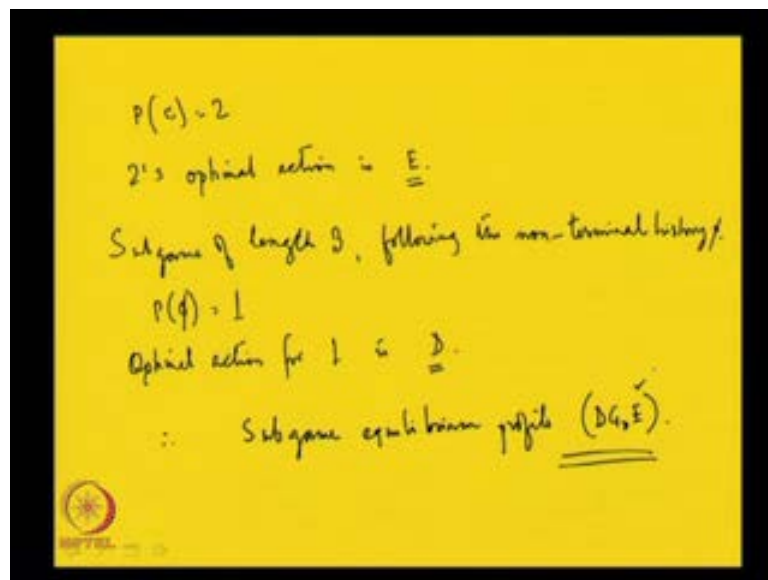 P(c) = 2
2's optimal action is E.
Subgame of length 3, following the non-terminal history ϕ.
P(ϕ) = 1
Optimal action for 1 is D.
∴ Subgame equilibrium profile (DG, E).
NPTEL